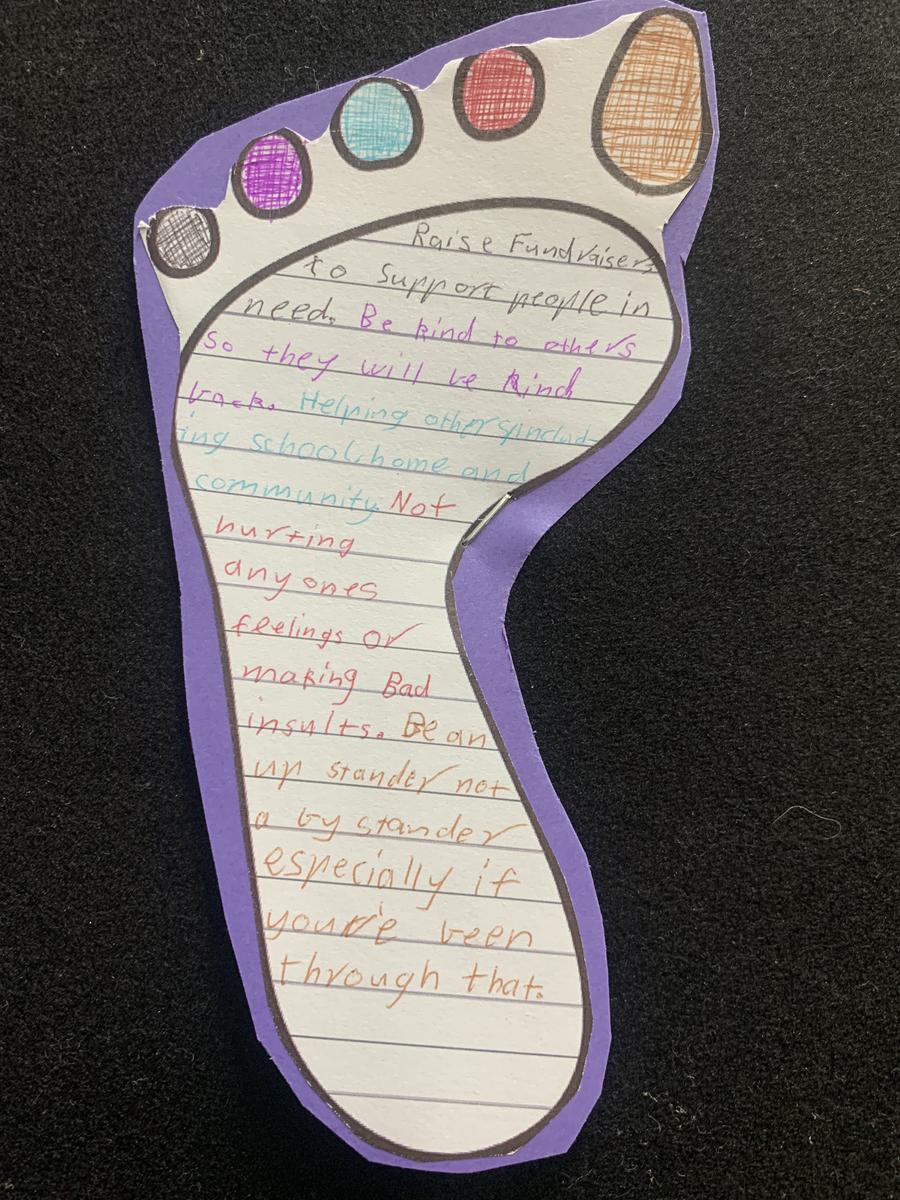 Raise Fundraisers
to support people in
need. Be kind to others
so they will be kind
back. Helping others, includ-
ing school, home and
community. Not
hurting
anyones
feelings or
making Bad
insults. Be an
up stander not
a by stander
especially if
you're been
through that.